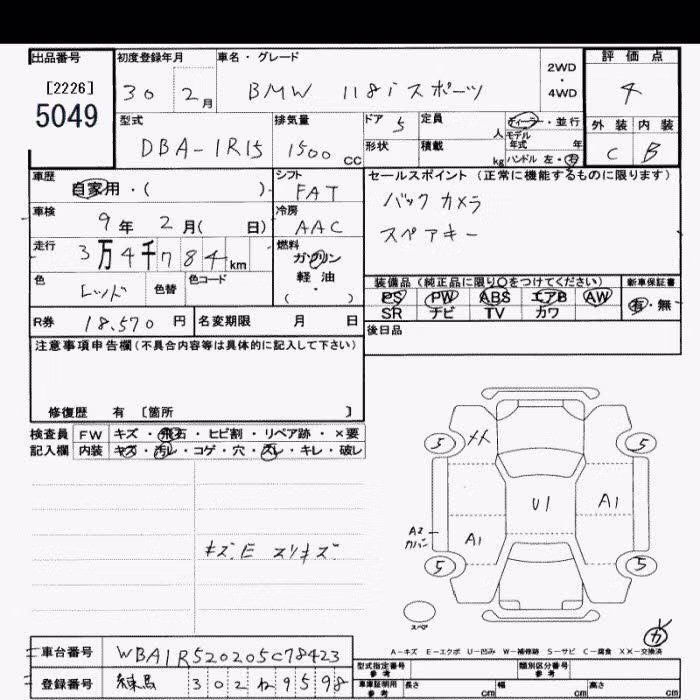 出品番号 初度登録年月 車名・グレード 評価点
[2226] 30 2月 BMW 118i スポーツ 2WD ・ 4WD 4
5049
型式 排気量 ドア 定員 ディーラー・並行 外装 内装
DBA-1R15 1500 CC 5 人 モデル年式 年 C B
形状 積載 kg ハンドル 左・右
車歴 シフト セールスポイント (正常に機能するものに限ります)
自家用・( ) FAT バックカメラ
車検 冷房
9年 2月( 日) AAC スペアキー
走行 燃料
3万4千784km ガソリン
色 色替 色コード 軽油
レッド ・ ( )
装備品 (純正品に限り○をつけてください) 新車保証書
PS PW ABS エアB AW 有・無
SR ナビ TV カワ
R券 18,570 円 名変期限 月 日 後日品
注意事項申告欄(不具合内容等は具体的に記入して下さい)
修復歴 有 [箇所 ]
検査員 FW キズ・飛石・ヒビ割・リペア跡・×要
記入欄 内装 キズ・汚レ・コゲ・穴・スレ・キレ・破レ
5 XX 5
U1 A1
A2 カバー A1
キズ.E スリキズ
5 5
スペア
A-キズ E-エクボ U-凹み W-補修跡 S-サビ C-腐食 XX-交換済
車台番号 WBA1R520205C78423
型式指定番号 参考 類別区分番号 参考
登録番号 練馬 302 ね 9598
車庫証明用 参考 長さ cm 幅 cm 高さ cm